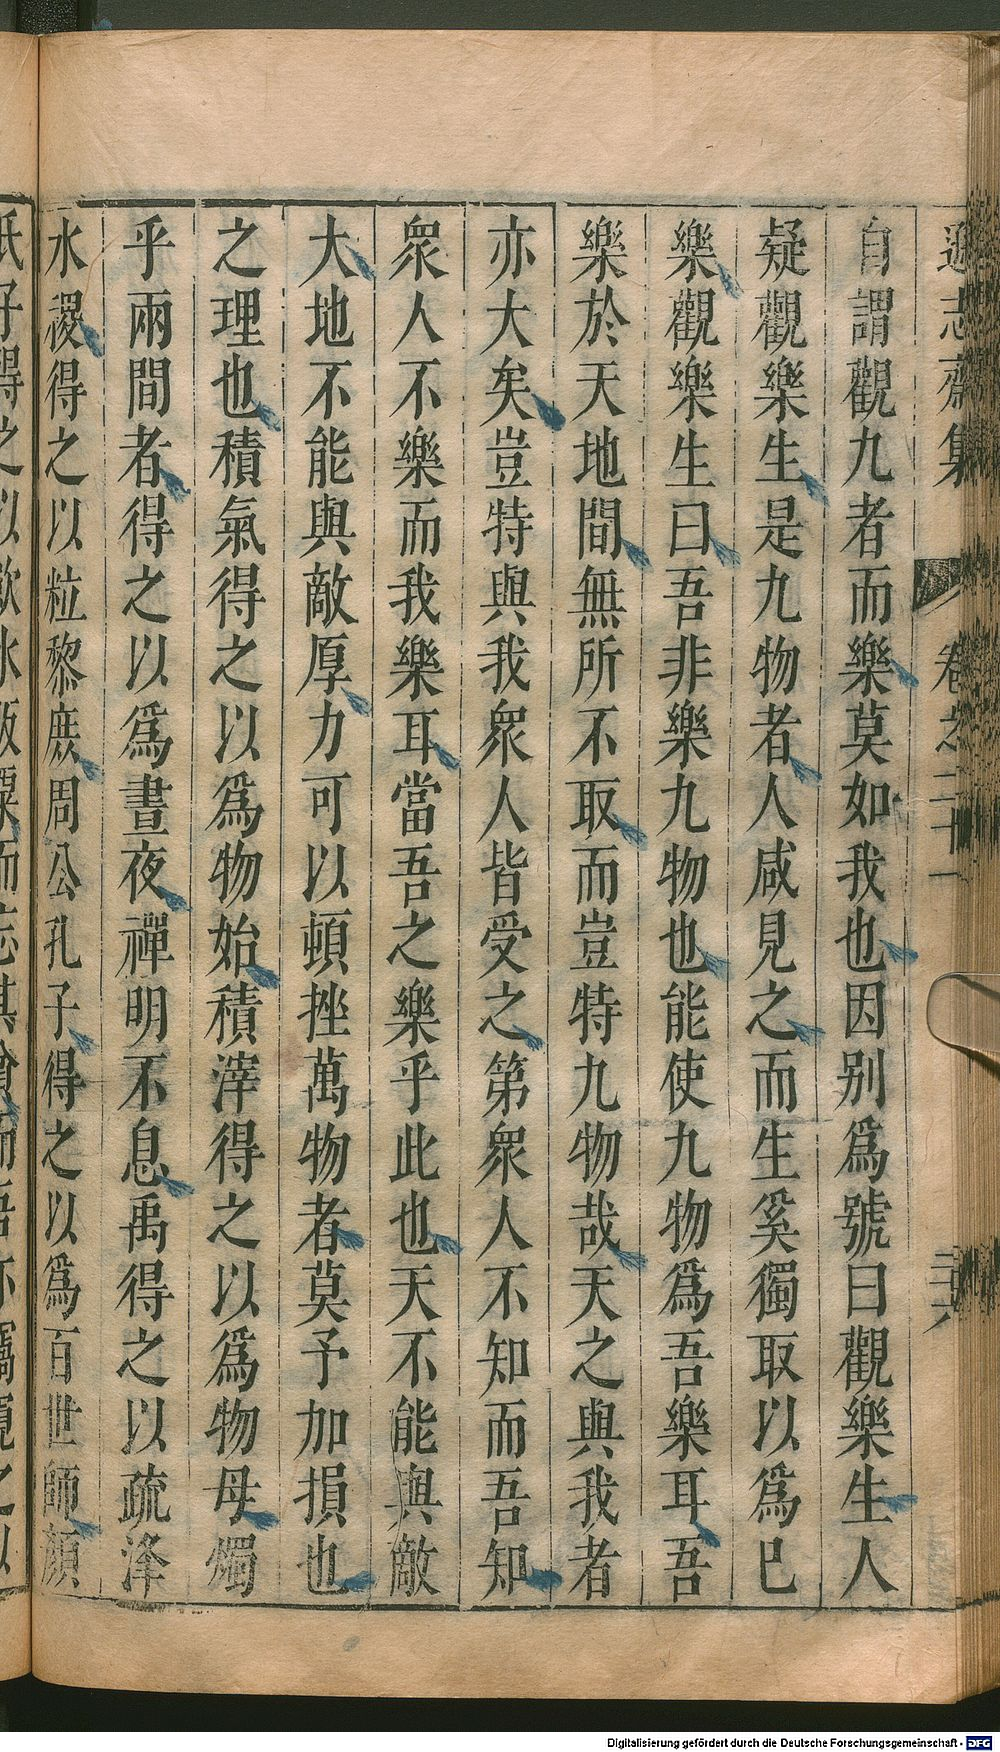 遜志齋集 卷之二十一 二六
自謂觀九者而樂莫如我也因別爲號曰觀樂生人
疑觀樂生是九物者人咸見之而生奚獨取以爲已
樂觀樂生曰吾非樂九物也能使九物爲吾樂耳吾
樂於天地間無所不取而豈特九物哉天之與我者
亦大矣豈特與我衆人皆受之第衆人不知而吾知
衆人不樂而我樂耳當吾之樂乎此也天不能與敵
大地不能與敵厚力可以頓挫萬物者莫予加損也
之理也積氣得之以爲物始積滓得之以爲物母燭
乎兩間者得之以爲晝夜禪明不息禹得之以疏洚
水稷得之以粒黎庶周公孔子得之以爲百世師顏
氏子得之以飲水飯
而忘其
吾亦竊窺之以
Digitalisierung gefördert durch die Deutsche Forschungsgemeinschaft - DFG